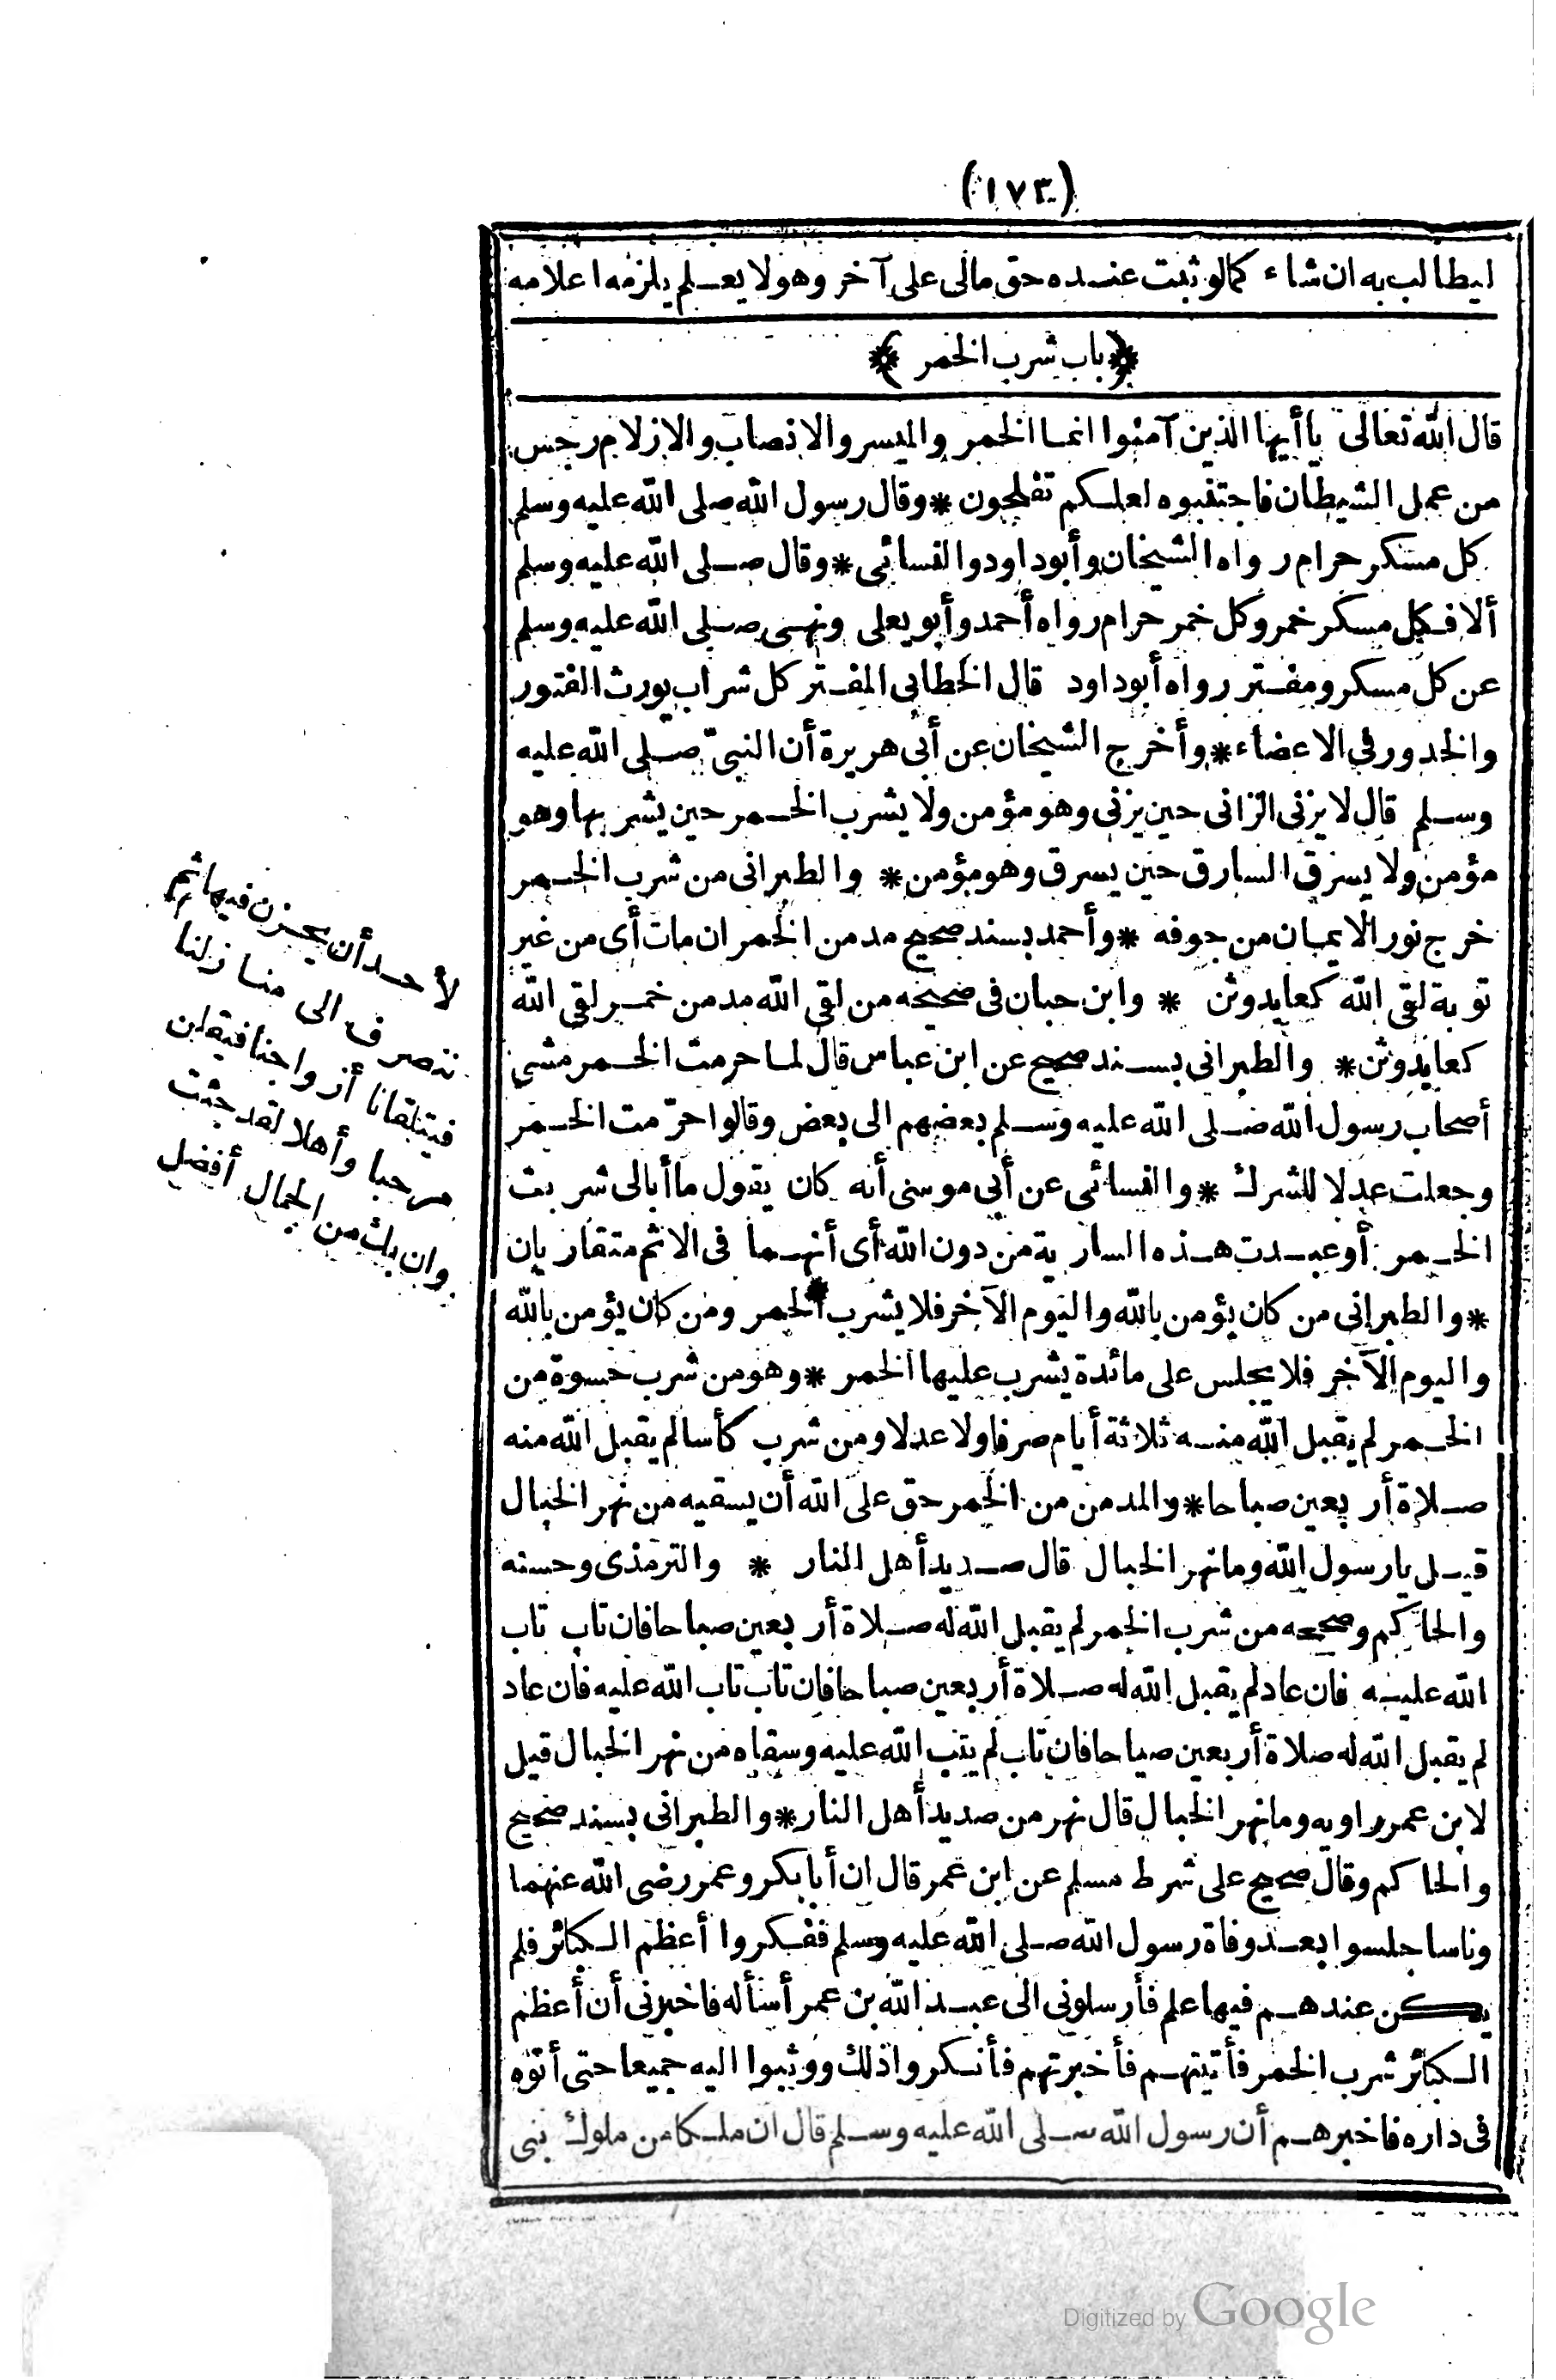 (١٧٣)
ليطالب به ان شاء كمالو ثبت عنده حق مالى على آخر وهو لا يعلم يلزمه اعلامه
﴿باب شرب الخمر﴾
قال الله تعالى يا أيها الذين آمنوا انما الخمر والميسر والانصاب والازلام رجس
من عمل الشيطان فاجتنبوه لعلكم تفلحون * وقال رسول الله صلى الله عليه وسلم
كل مسكر حرام رواه الشيخان وأبو داود والنسائى * وقال صلى الله عليه وسلم
ألا فكل مسكر خمر وكل خمر حرام رواه أحمد وأبو يعلى ونهى صلى الله عليه وسلم
عن كل مسكر ومفتر رواه أبو داود قال الخطابى المفتر كل شراب يورث الفتور
والخدور فى الاعضاء * وأخرج الشيخان عن أبى هريرة أن النبىّ صلى الله عليه
وسلم قال لا يزنى الزانى حين يزنى وهو مؤمن ولا يشرب الخمر حين يشربها وهو
مؤمن ولا يسرق السارق حين يسرق وهو مؤمن * والطبرانى من شرب الخمر
خرج نور الايمان من جوفه * وأحمد بسند صحيح مدمن الخمر ان مات أى من غير
توبة لقى الله كعابد وثن * وابن حبان فى صحيحه من لقى الله مدمن خمر لقى الله
كعابد وثن * والطبرانى بسند صحيح عن ابن عباس قال لما حرمت الخمر مشى
أصحاب رسول الله صلى الله عليه وسلم بعضهم الى بعض وقالوا حرّمت الخمر
وجعلت عدلا للشرك * والنسائى عن أبى موسى أنه كان يقول ما أبالى شربت
الخمر أو عبدت هذه السارية من دون الله أى أنهما فى الاثم متقاربان
* والطبرانى من كان يؤمن بالله واليوم الآخر فلا يشرب الخمر ومن كان يؤمن بالله
واليوم الآخر فلا يجلس على مائدة يشرب عليها الخمر * وهو من شرب حسوة من
الخمر لم يقبل الله منه ثلاثة أيام صرفا ولا عدلا ومن شرب كأسا لم يقبل الله منه
صلاة أربعين صباحا * والمدمن من الخمر حق على الله أن يسقيه من نهر الخبال
قيل يا رسول الله وما نهر الخبال قال صديد أهل النار * والترمذى وحسنه
والحاكم وصححه من شرب الخمر لم يقبل الله له صلاة أربعين صباحا فان تاب تاب
الله عليه فان عاد لم يقبل الله له صلاة أربعين صباحا فان تاب تاب الله عليه فان عاد
لم يقبل الله له صلاة أربعين صباحا فان تاب لم يتب الله عليه وسقاه من نهر الخبال قيل
لابن عمر راويه وما نهر الخبال قال نهر من صديد أهل النار * والطبرانى بسند صحيح
والحاكم وقال صحيح على شرط مسلم عن ابن عمر قال ان أبا بكر وعمر رضى الله عنهما
وناسا جلسوا بعد وفاة رسول الله صلى الله عليه وسلم ففكروا أعظم الكبائر فلم
يكن عندهم فيها علم فأرسلونى الى عبد الله بن عمر أسأله فاخبرنى أن أعظم
الكبائر شرب الخمر فأتيتهم فأخبرتهم فأنكروا ذلك ووثبوا اليه جميعا حتى أتوه
فى داره فاخبرهم أن رسول الله صلى الله عليه وسلم قال ان ملكا من ملوك بنى
لأحد أن يحزن فيها ثم
ننصرف الى منازلنا
فيتلقانا أزواجنا فيقلن
مرحبا وأهلا لقد جئت
وان بك من الجمال أفضل
Digitized by Google